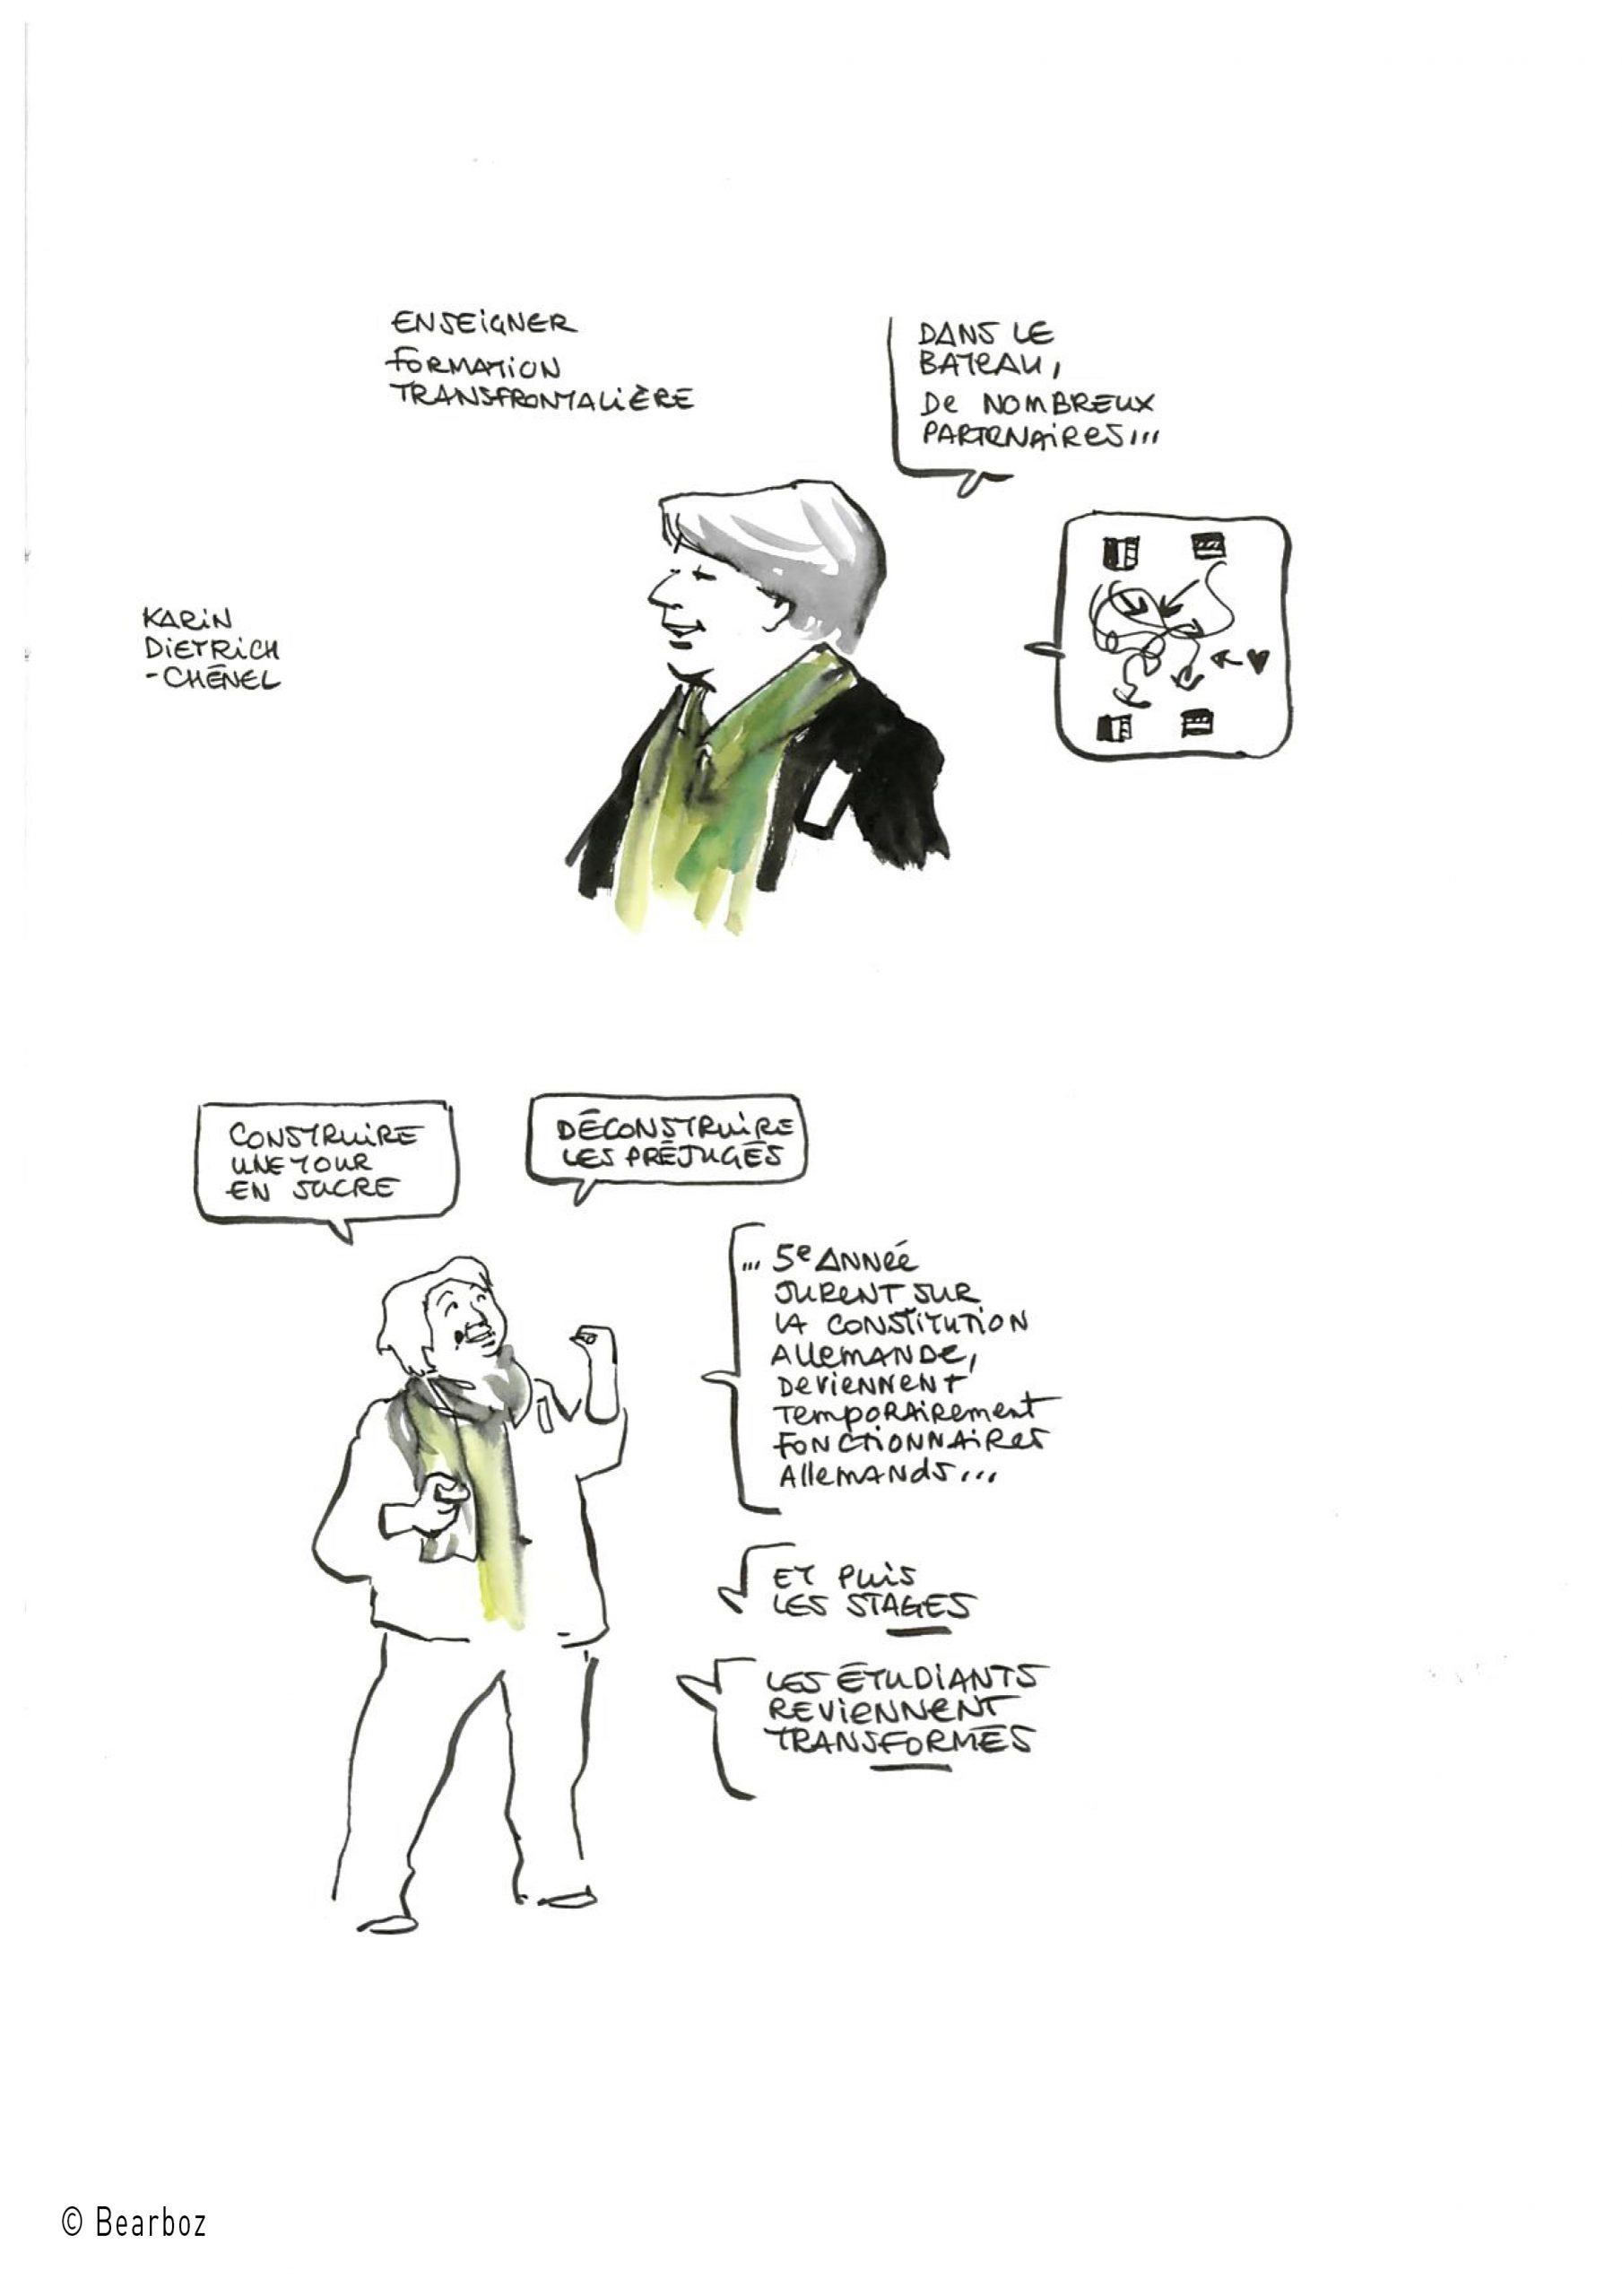 ENSEIGNER
FORMATION
TRANSFRONTALIÈRE
DANS LE
BATEAU,
DE NOMBREUX
PARTENAIRES...
KARIN
DIETRICH
-CHÉNEL
CONSTRUIRE
UNE TOUR
EN SUCRE
DÉCONSTRUIRE
LES PRÉJUGÉS
... 5e ANNÉE
JURENT SUR
LA CONSTITUTION
ALLEMANDE,
DEVIENNENT
TEMPORAIREMENT
FONCTIONNAIRES
ALLEMANDS...
ET PUIS
LES STAGES
LES ÉTUDIANTS
REVIENNENT
TRANSFORMÉS
© Bearboz